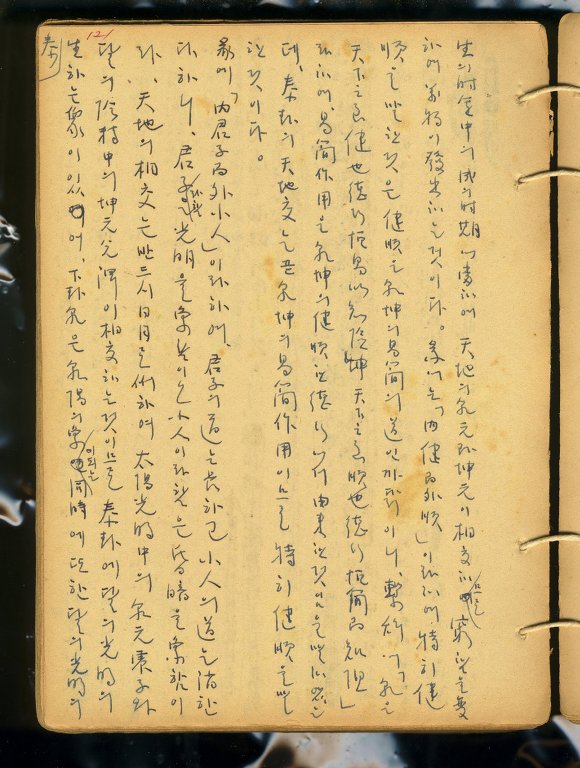 生의 時 中의 成의 時期에 當하여 天地의 乾元과 坤元이 相交하므로 窮한을 變
하여 萬物이 發生하는 것이다. 彖에는 「內健而外順」이라하여, 特히 健
順을 말한것은 健順은 乾坤의 易簡의 道인 까닭이니, 繫辭에 「乾은
天下之至健也 德行恒易以知險 坤 天下之至順也 德行恒簡以知阻」
라하여, 易簡作用은 乾坤의 健順한 德行에서 由來한것임을 말하였는
데, 泰卦의 天地交는 곧 乾坤의 易簡作用이므로 特히 健順을 말
한것이다.
彖에 「內君子而外小人」이라하여, 君子의 道는 長하고 小人의 道는 消한
다하니, 君子 光明을 象함이오 小人이라함은 昏暗을 象함이
라. 天地의 相交는 반드시 日月로써하여 太陽光明中의 乾元 素子와
달의 陰精中의 坤元 이 相交하는것이므로 泰卦에 달의 光明의
生하는 象이 있어, 下卦乾은 乾陽의 象이되는 同時에 또한 달의 光明의
泰
121